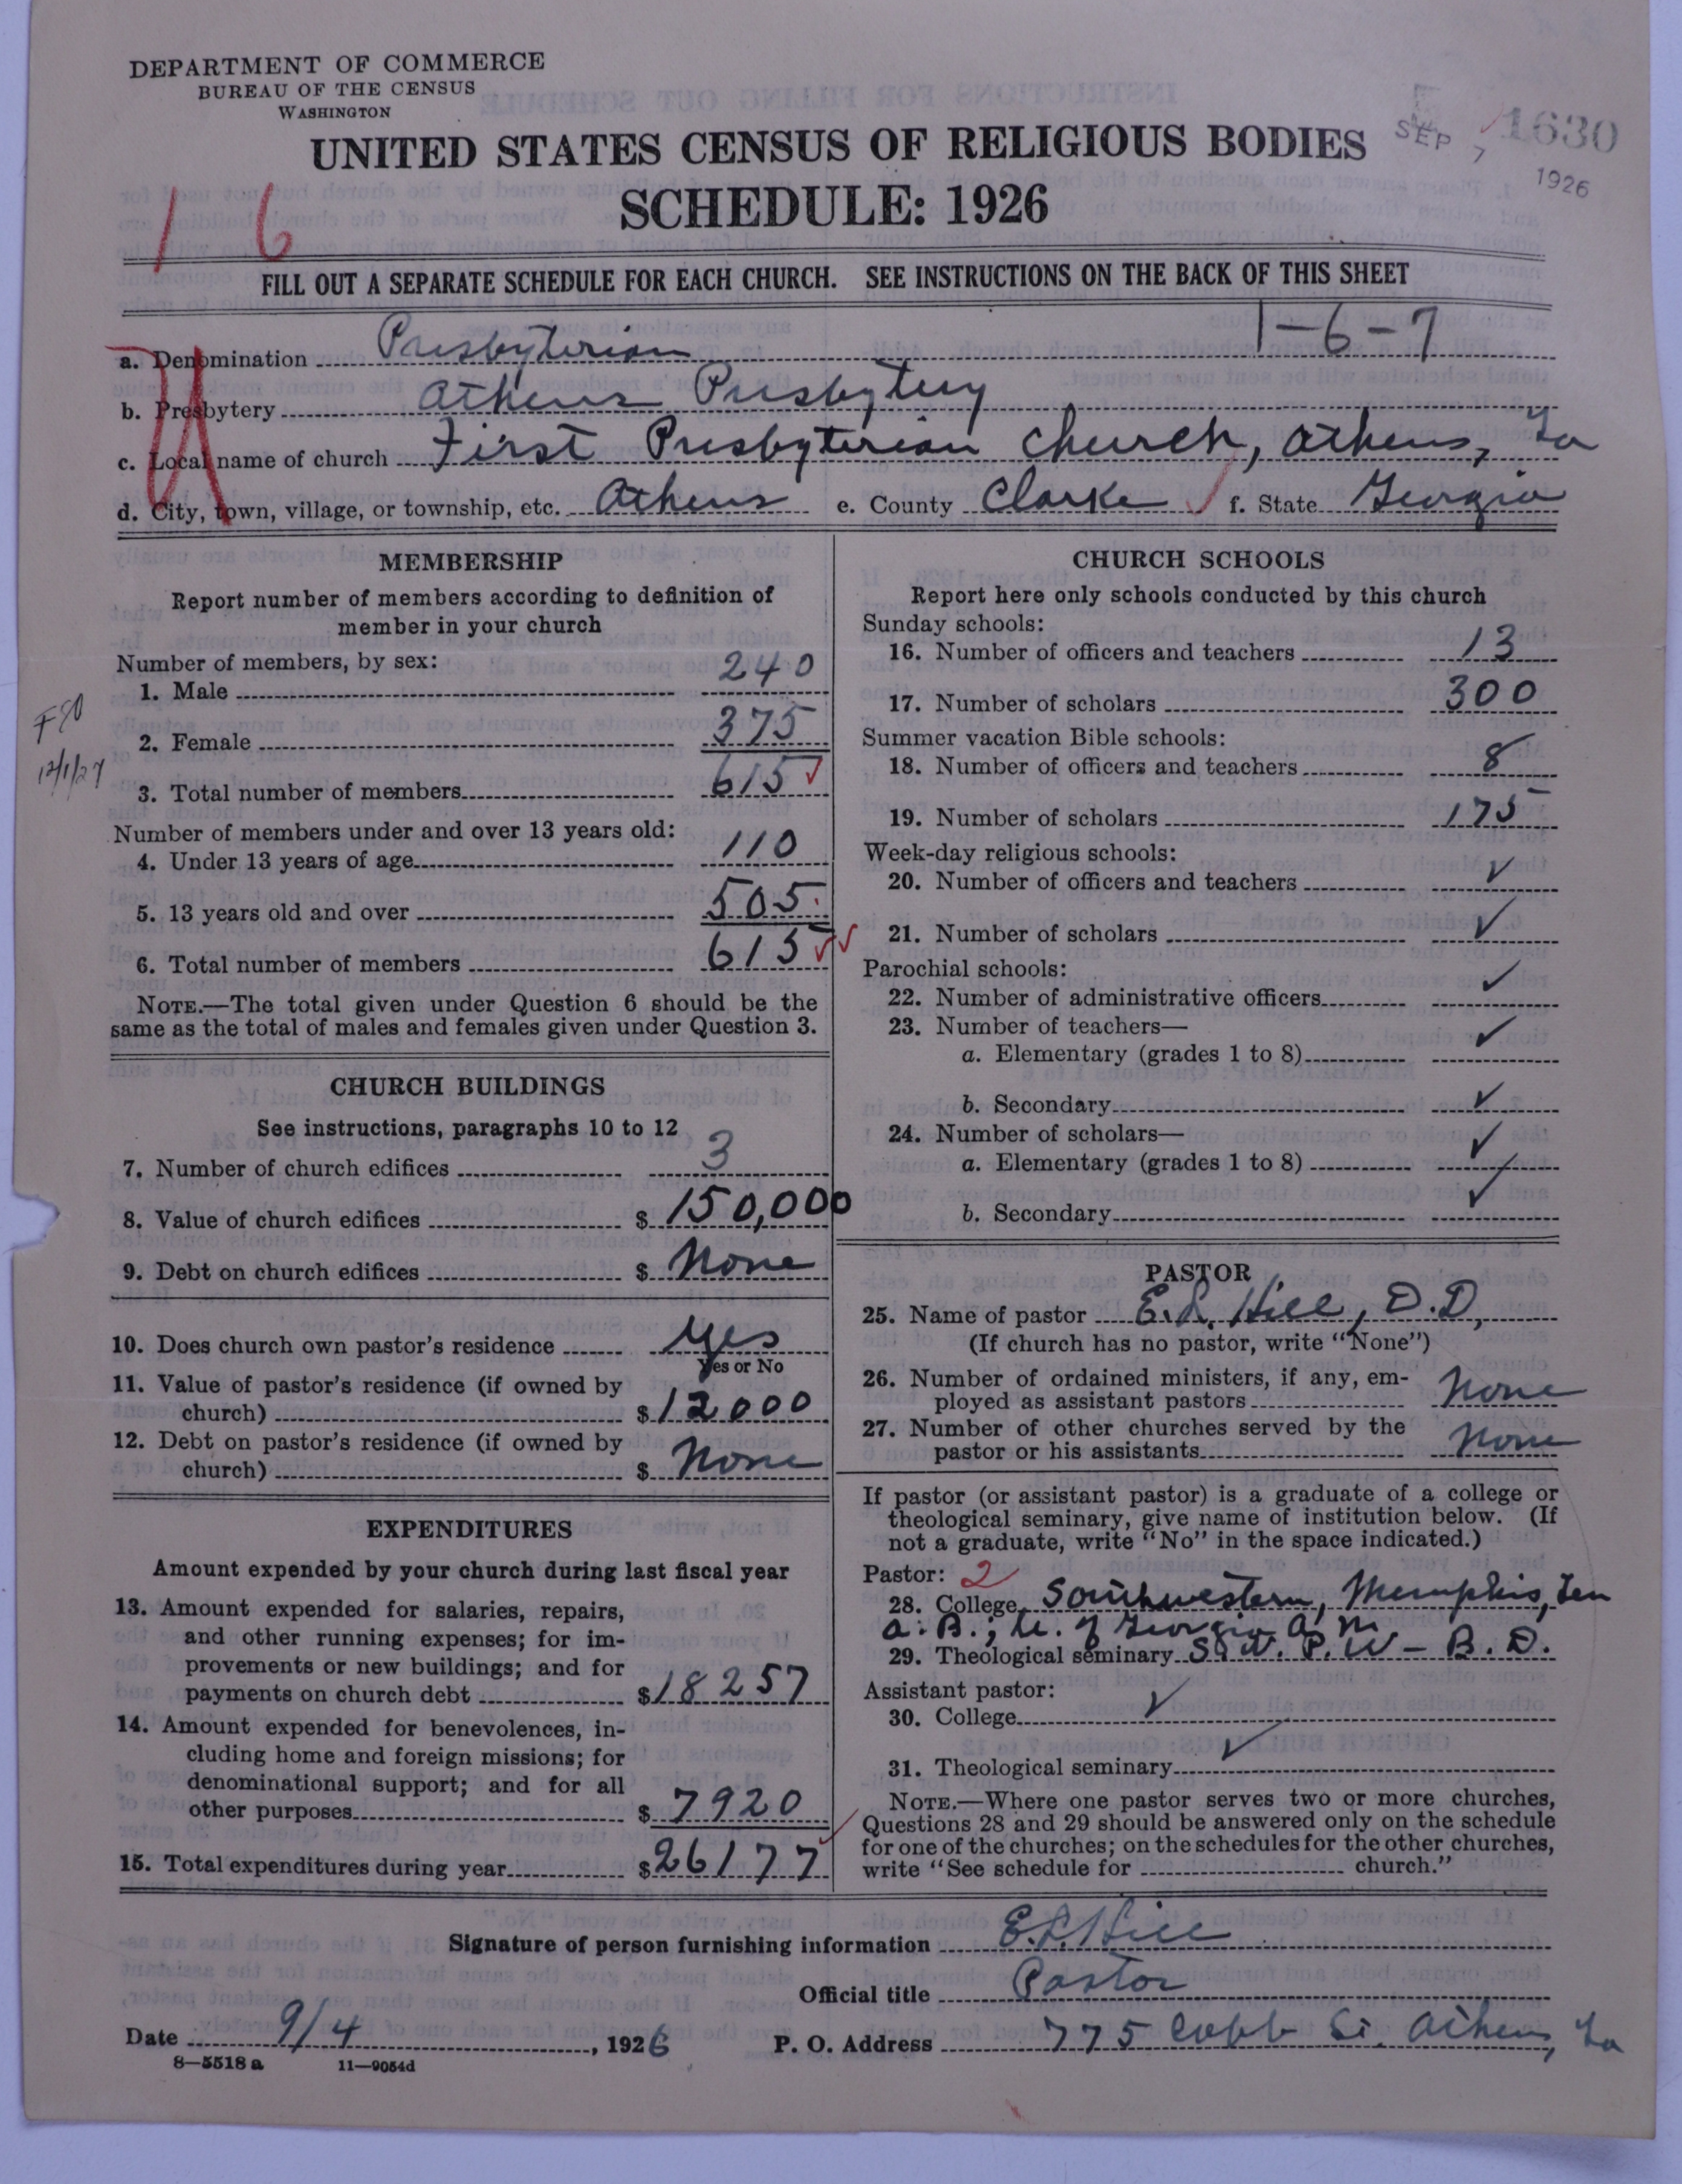 DEPARTMENT OF COMMERCE
BUREAU OF THE CENSUS
WASHINGTON
UNITED STATES CENSUS OF RELIGIOUS BODIES
SCHEDULE: 1926
SEP 7 1926
1630
1 6
FILL OUT A SEPARATE SCHEDULE FOR EACH CHURCH. SEE INSTRUCTIONS ON THE BACK OF THIS SHEET
1-6-7
a. Denomination Presbyterian
b. Presbytery Athens Presbytery
c. Local name of church First Presbyterian Church, Athens, Ga
d. City, town, village, or township, etc. Athens e. County Clarke f. State Georgia
MEMBERSHIP
Report number of members according to definition of
member in your church
Number of members, by sex:
1. Male 240
2. Female 375
3. Total number of members 615 ✓
Number of members under and over 13 years old:
4. Under 13 years of age 110
5. 13 years old and over 505
6. Total number of members 615 ✓✓
NOTE.—The total given under Question 6 should be the
same as the total of males and females given under Question 3.
12/1/27
CHURCH BUILDINGS
See instructions, paragraphs 10 to 12
7. Number of church edifices 3
8. Value of church edifices $ 150,000
9. Debt on church edifices $ None
10. Does church own pastor's residence Yes
Yes or No
11. Value of pastor's residence (if owned by
church) $ 12000
12. Debt on pastor's residence (if owned by
church) $ None
EXPENDITURES
Amount expended by your church during last fiscal year
13. Amount expended for salaries, repairs,
and other running expenses; for im-
provements or new buildings; and for
payments on church debt $ 18257
14. Amount expended for benevolences, in-
cluding home and foreign missions; for
denominational support; and for all
other purposes $ 7920
15. Total expenditures during year $ 26177
CHURCH SCHOOLS
Report here only schools conducted by this church
Sunday schools:
16. Number of officers and teachers 13
17. Number of scholars 300
Summer vacation Bible schools:
18. Number of officers and teachers 8
19. Number of scholars 175
Week-day religious schools:
20. Number of officers and teachers ✓
21. Number of scholars ✓
Parochial schools:
22. Number of administrative officers ✓
23. Number of teachers— ✓
a. Elementary (grades 1 to 8)
b. Secondary ✓
24. Number of scholars— ✓
a. Elementary (grades 1 to 8)
b. Secondary ✓
PASTOR
25. Name of pastor E. L. Hill, D.D.
(If church has no pastor, write "None")
26. Number of ordained ministers, if any, em-
ployed as assistant pastors None
27. Number of other churches served by the
pastor or his assistants None
If pastor (or assistant pastor) is a graduate of a college or
theological seminary, give name of institution below. (If
not a graduate, write "No" in the space indicated.)
Pastor: 2
28. College Southwestern, Memphis, Ten
A.B.; U. of Georgia A.M.
29. Theological seminary S.W.P.U - B.D.
Assistant pastor:
30. College ✓
31. Theological seminary ✓
NOTE.—Where one pastor serves two or more churches,
Questions 28 and 29 should be answered only on the schedule
for one of the churches; on the schedules for the other churches,
write "See schedule for church."
Signature of person furnishing information E. L. Hill
Official title Pastor
Date 9/4, 1926 P. O. Address 775 Cobb St. Athens, Ga
8—5518 a 11—9054d